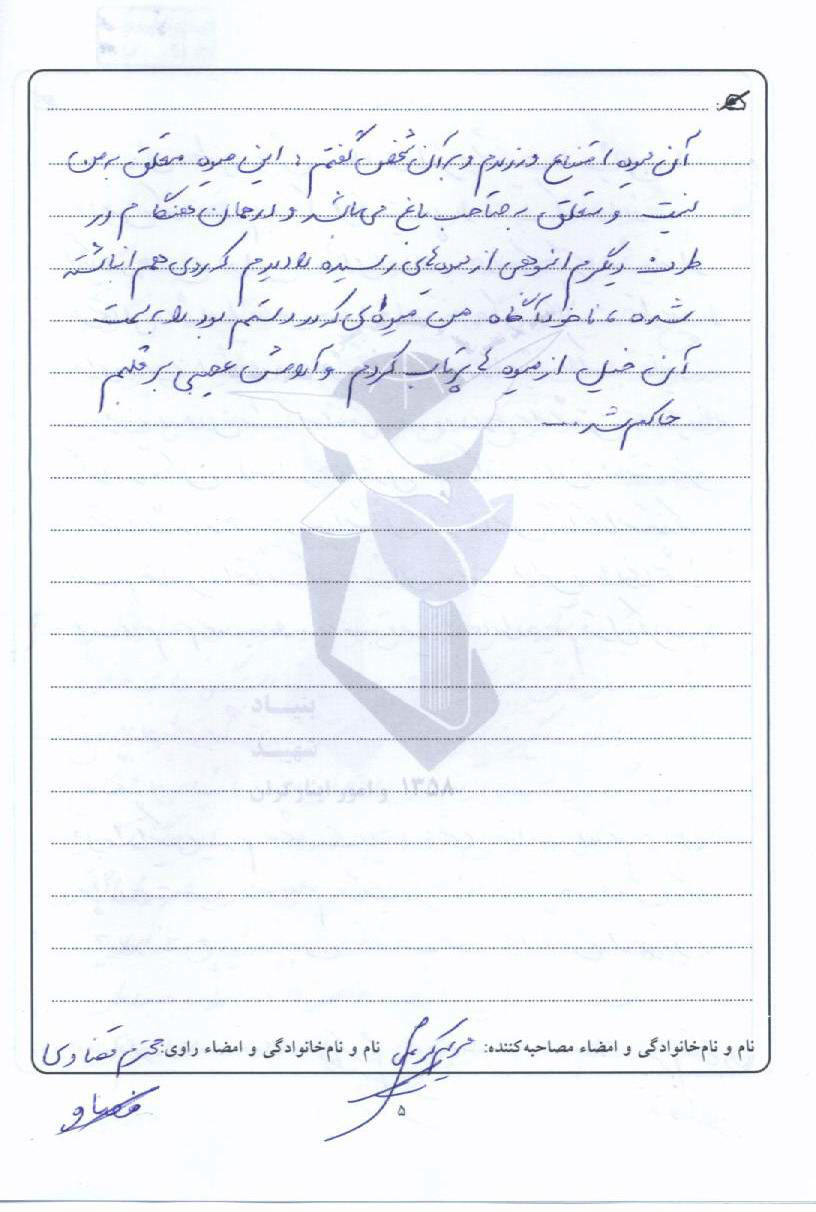 آن میوه امتناع ورزیدم و به آن شخص گفتم: این میوه متعلق به من
نیست و متعلق به صاحب باغ می‌باشد و در همان هنگام در
طرف دیگرم انبوهی از میوه‌های رسیده را دیدم که روی هم انباشته
شده، ناخودآگاه من میوه‌ای که در دستم بود را به سمت
آن خیل از میوه ها پرتاب کردم و آرامش عجیبی بر قلبم
حاکم شد...
بنیاد
شهید
و امور ایثارگران ۱۳۵۸
نام و نام‌خانوادگی و امضاء مصاحبه‌کننده: نام و نام‌خانوادگی و امضاء راوی: محترم قضاوی
۵